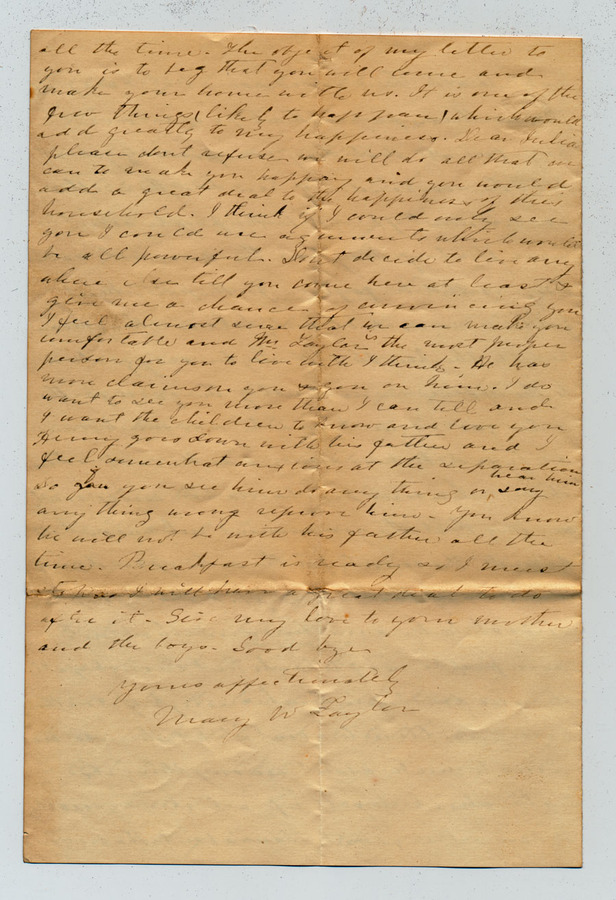 all the time. The object of my letter to
you is to beg that you will come and
make your home with us. It is one of the
few things (likely to happen) which would
add greatly to my happiness. Dear Julia
please don't refuse we will do all that we
can to make you happy and you would
add a great deal to the happiness of this
household. I think if I could only see
you I could use arguments which would
be all powerful. Don't decide to live any
where else till you come here at least &
give me a chance of convincing you
I feel almost sure that we can make you
comfortable and Mr Taylor is the most proper
person for you to live with I think. He has
more claims on you & you on him. I do
want to see you more than I can tell and
I want the children to know and love you
Henry goes down with his father and I
feel somewhat anxious at the separation
so if you see him do any thing or hear him say
any thing wrong reprove him. You know
he will not be with his father all the
time. Breakfast is ready so I must
stop as I will have a great deal to do
after it. Give my love to your mother
and the boys. Good bye
yours affectionately
Mary W Taylor